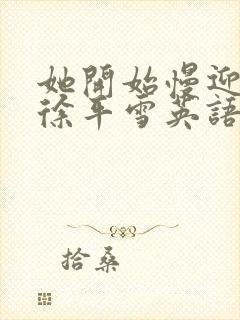 她開始慢迎
徐平雪英語
拾桑